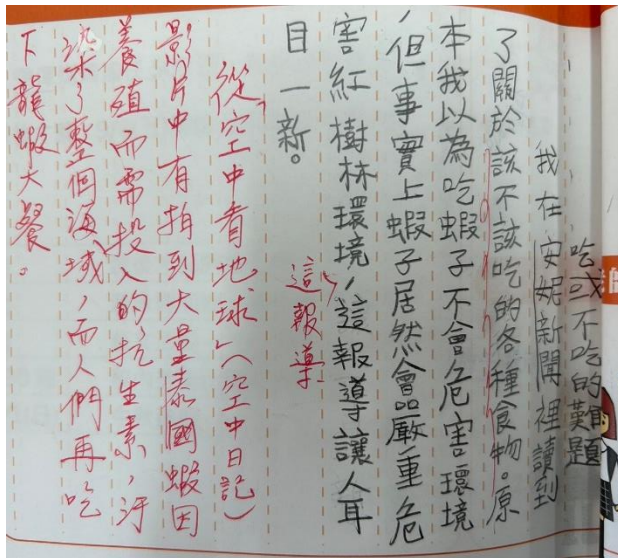 吃或不吃的難題
我在安妮新聞裡讀到
了關於該不該吃的各種食物。原
本我以為吃蝦子不會危害環境
，但事實上蝦子居然會嚴重危
害紅樹林環境，這報導讓人耳
目一新。
這報導
「從空中看地球」（空中日記）
影片中有拍到大量泰國蝦因
養殖而需投入的抗生素，汙
染了整個海域，而人們再吃
下龍蝦大餐。